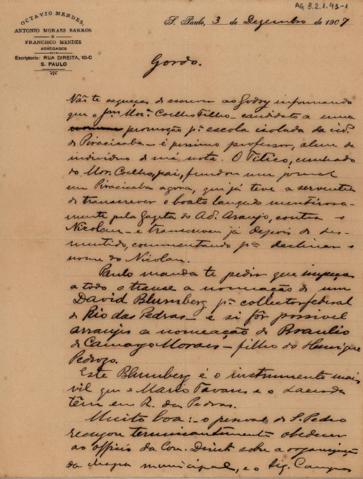 AG 3.2.1.43-1
OCTAVIO MENDES,
ANTONIO MORAES BARROS
E
FRANCISCO MENDES
ADVOGADOS
Escriptorio: RUA DIREITA, 10-C
S. PAULO
S. Paulo, 3 de Dezembro de 1907
Gordo.
Não te esqueças de escrever ao Godoy informando
que o Mor. Coelho Filho candidato a uma
promoção pa. escola isolada da cid.
de Piracicaba é pessimo professor, alem de
individuo de má nota. O cunhado
do Mor. Coelho, pai, fundou um jornal
em Piracicaba agora, que já teve a
de transcrever o boato lançado mentirosa-
mente pela Gazeta do Ad. Araujo, contra o
Nicolau e transcreveu já depois de des-
mentido, commentando pa.
nome do Nicolau.
Paulo manda te pedir que
a todo o transe a nomeação de um
David Blumberg pa. collector federal
de Rio das Pedras e si fôr possivel
arranjes a nomeação de Braulio
de Camargo Moraes filho do Henrique
Pedroso.
Este Blumberg é o instrumento mais
vil que o Mario Tavares e o Lacerda
têm em R. das Pedras.
Muito boa: o pessoal de S. Pedro
recusou terminantemente obedecer
ao officio da Com. Direct. sobre a organização
da chapa municipal, e o Sig. Campos